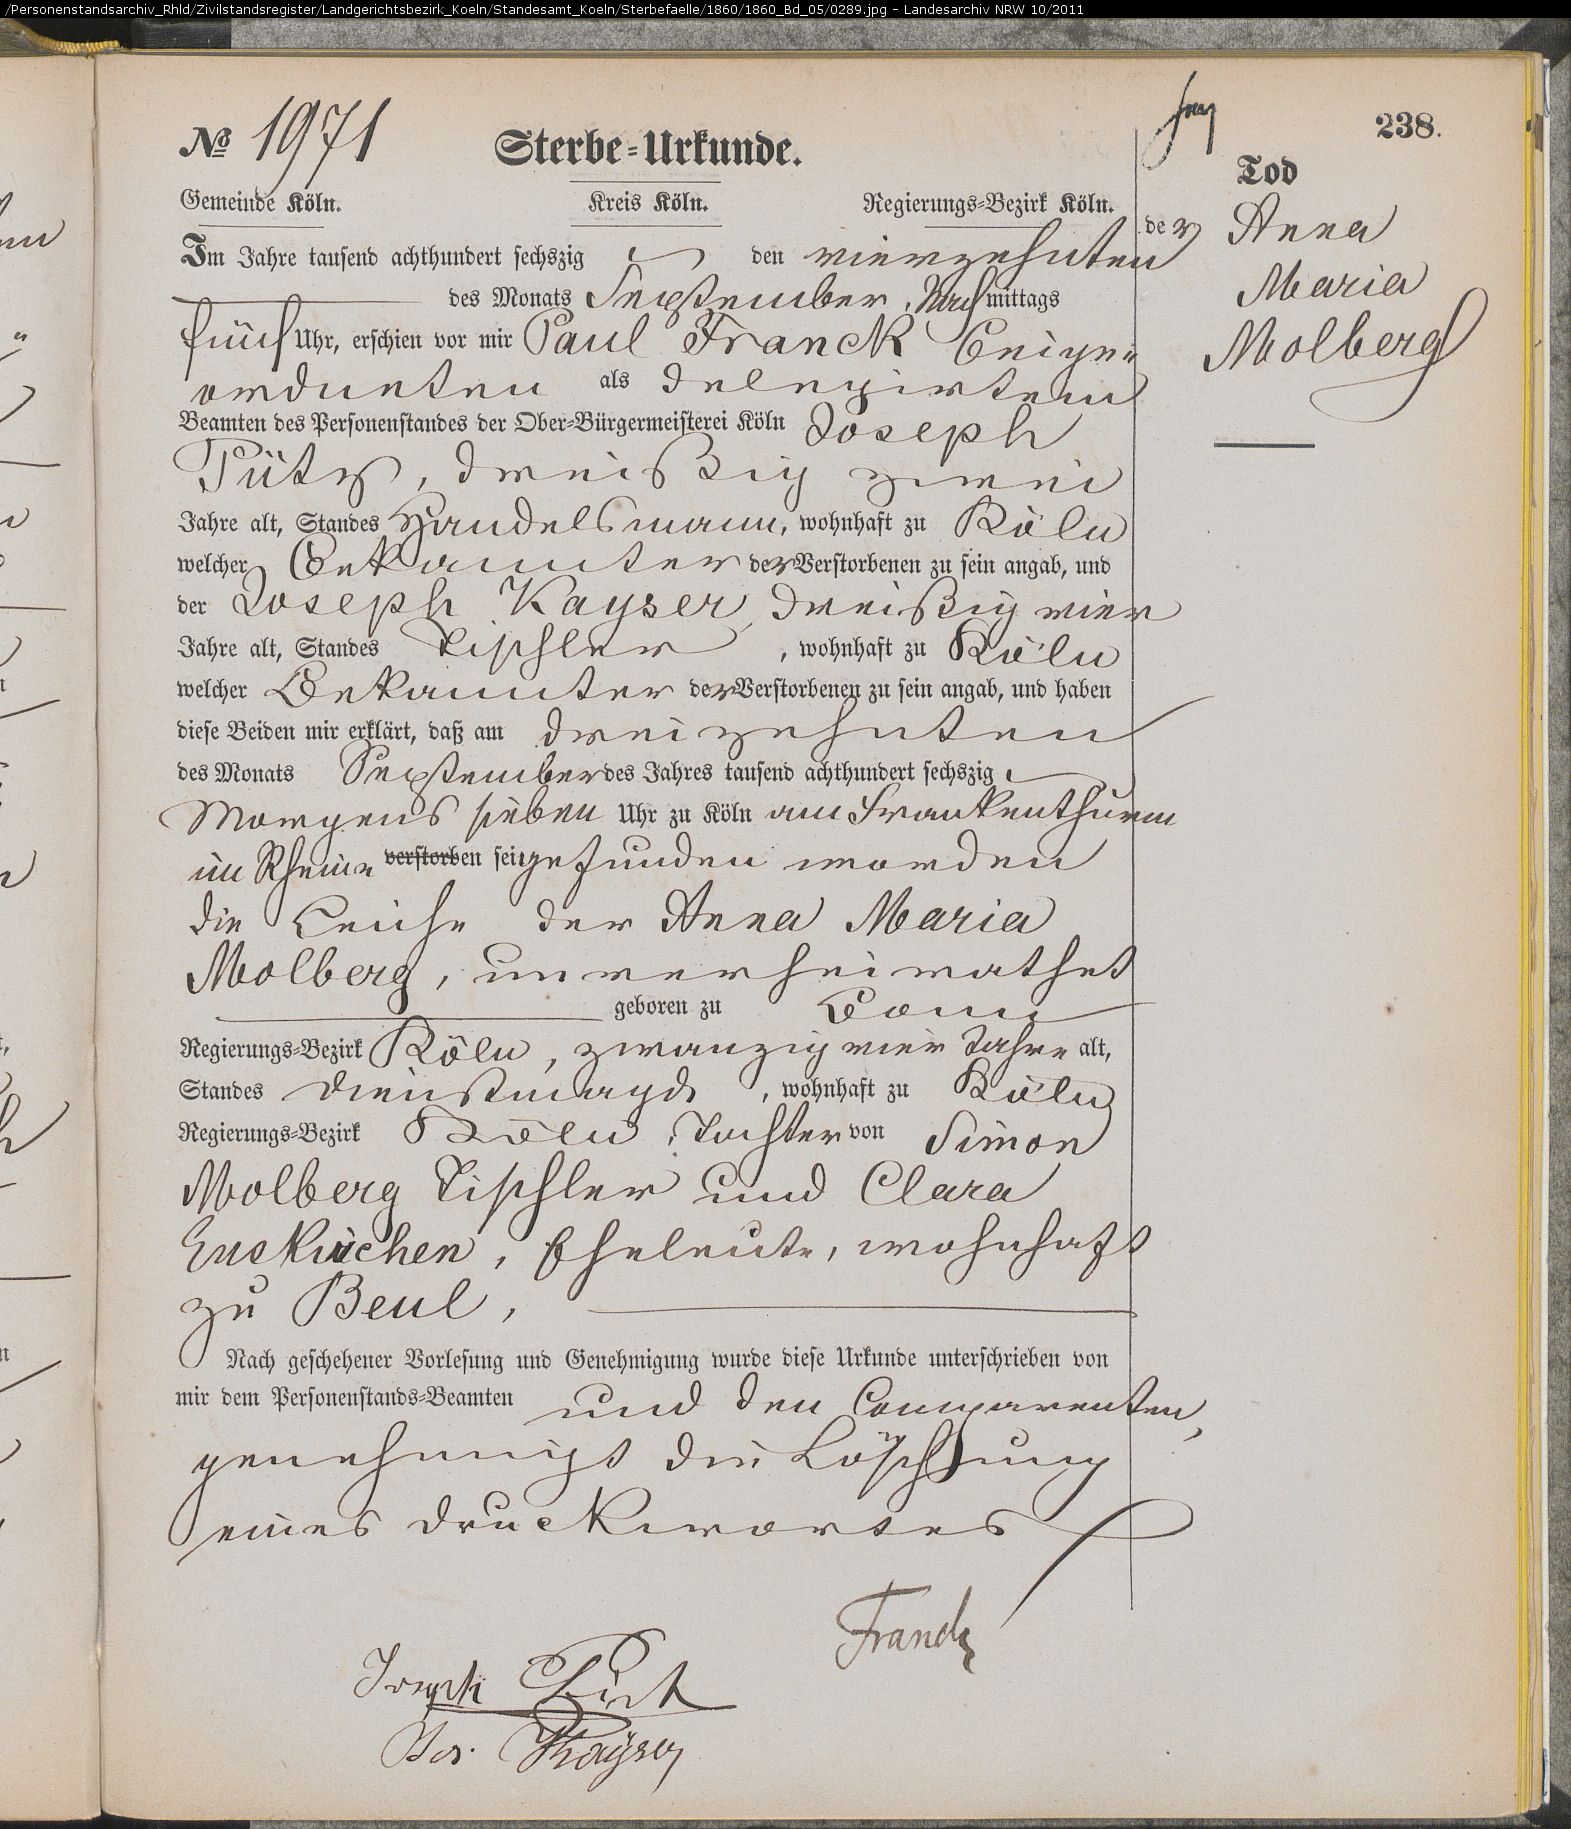 /Personenstandsarchiv_Rhld/Zivilstandsregister/Landgerichtsbezirk_Koeln/Standesamt_Koeln/Sterbefaelle/1860/1860_Bd_05/0289.jpg - Landesarchiv NRW 10/2011
238.
№ 1971
Sterbe-Urkunde.
Gemeinde Köln. Kreis Köln. Regierungs-Bezirk Köln.
Tod
der Anna
Maria
Molberg
Im Jahre tausend achthundert sechszig den vierzehnten
des Monats September, Nachmittags
fünf Uhr, erschien vor mir Paul Franck Beige-
ordneten als delegirtem
Beamten des Personenstandes der Ober-Bürgermeisterei Köln Joseph
Pütz, dreißig zwei
Jahre alt, Standes Handelsmann, wohnhaft zu Köln
welcher Bekannter der Verstorbenen zu sein angab, und
der Joseph Kayser, dreißig vier
Jahre alt, Standes Tischler, wohnhaft zu Köln
welcher Bekannter der Verstorbenen zu sein angab, und haben
diese Beiden mir erklärt, daß am dreizehnten
des Monats September des Jahres tausend achthundert sechszig
Morgens sieben Uhr zu Köln am Frankenthurm
im Rheine verstorben sei gefunden worden
die Leiche der Anna Maria
Molberg, unverheirathet
geboren zu Bonn
Regierungs-Bezirk Köln, zwanzig vier Jahre alt,
Standes Dienstmagd, wohnhaft zu Köln
Regierungs-Bezirk Köln, Tochter von Simon
Molberg Tischler und Clara
Euskirchen, Eheleute, wohnhaft
zu Beul,
Nach geschehener Vorlesung und Genehmigung wurde diese Urkunde unterschrieben von
mir dem Personenstands-Beamten und den Comparenten,
genehmigt die Löschung
eines Druckwortes
Franck
Joseph Pütz
Jos. Kayser